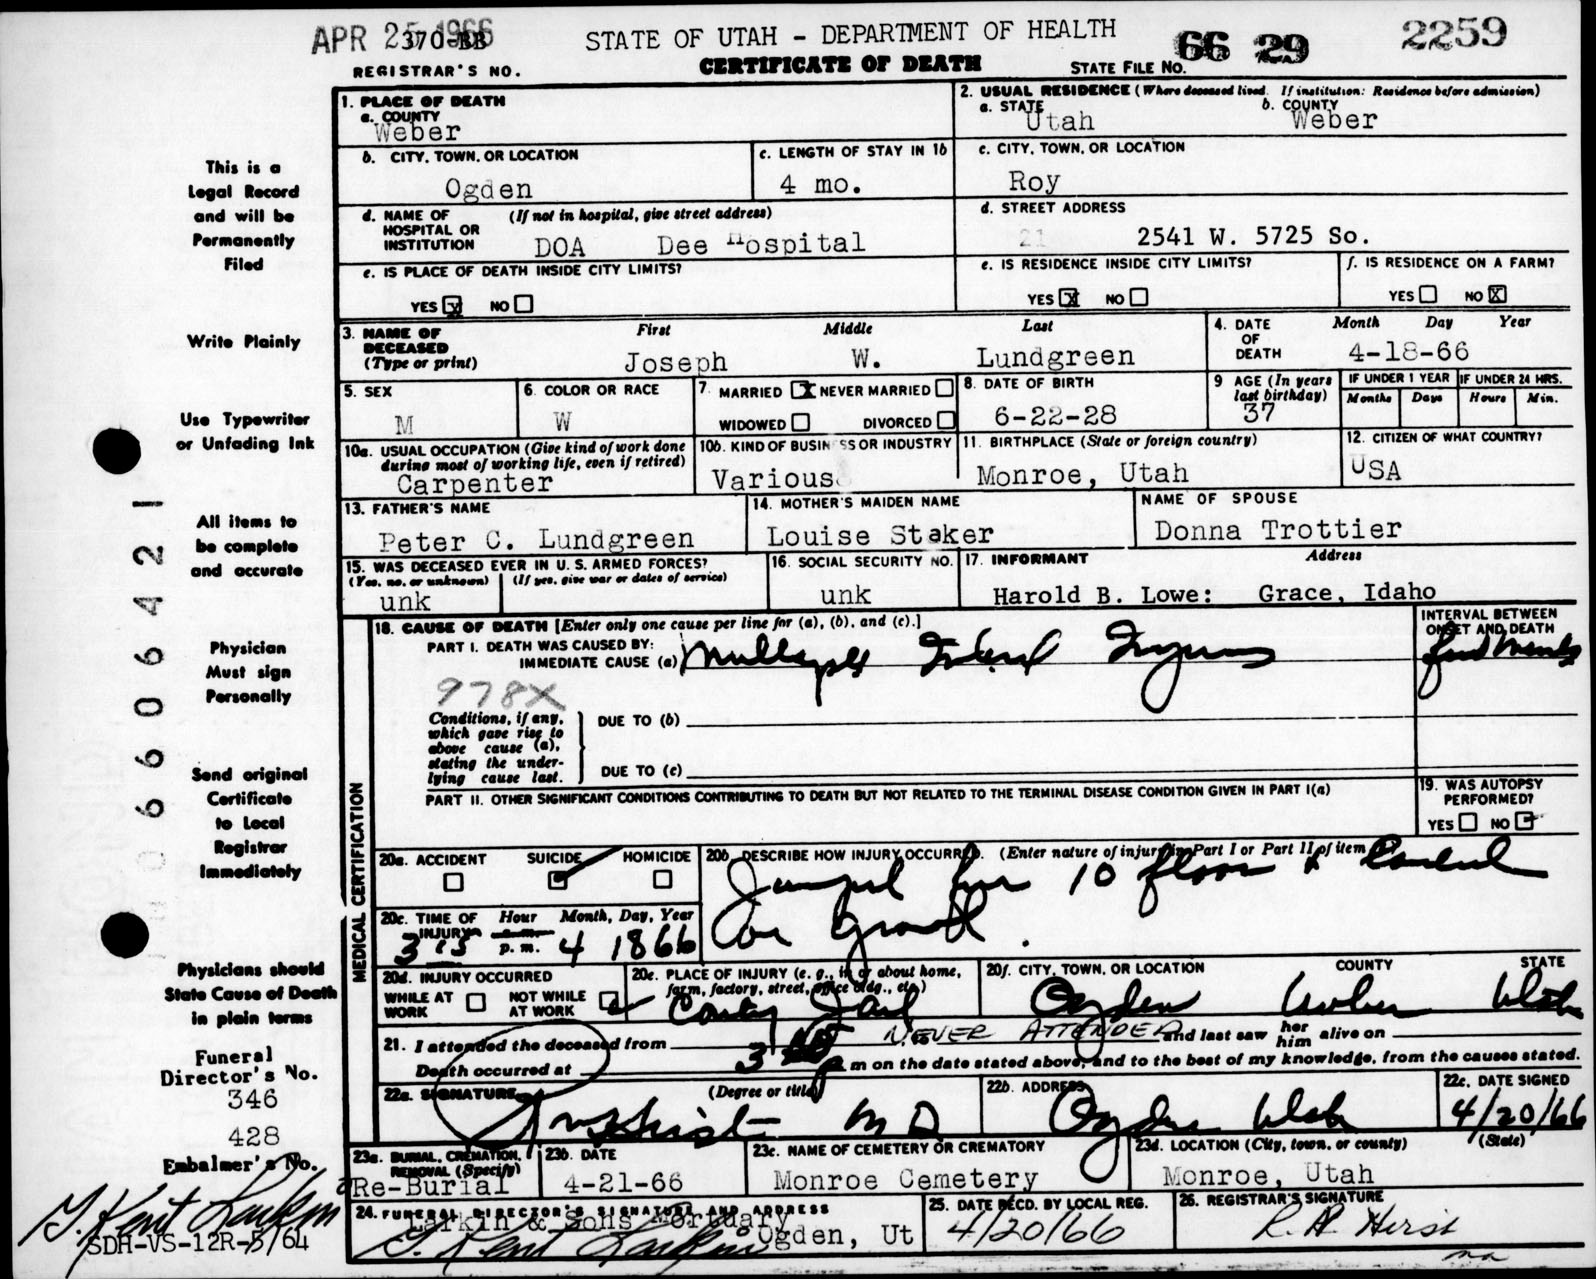 APR 25 1966
370-BB
REGISTRAR'S NO.
STATE OF UTAH - DEPARTMENT OF HEALTH
CERTIFICATE OF DEATH
STATE FILE NO.
66 29
2259
This is a
Legal Record
and will be
Permanently
Filed
Write Plainly
Use Typewriter
or Unfading Ink
All items to
be complete
and accurate
Physician
Must sign
Personally
Send original
Certificate
to Local
Registrar
Immediately
Physicians should
State Cause of Death
in plain terms
Funeral
Director's No.
346
428
Embalmer's No.
T. Kent Larkin
SDH-VS-12R-5/64
66064 21
1. PLACE OF DEATH
a. COUNTY
Weber
2. USUAL RESIDENCE (Where deceased lived. If institution: Residence before admission)
a. STATE b. COUNTY
Utah Weber
b. CITY, TOWN, OR LOCATION
Ogden
c. LENGTH OF STAY IN 1b
4 mo.
c. CITY, TOWN, OR LOCATION
Roy
d. NAME OF (If not in hospital, give street address)
HOSPITAL OR
INSTITUTION
DOA Dee Hospital
d. STREET ADDRESS
21 2541 W. 5725 So.
e. IS PLACE OF DEATH INSIDE CITY LIMITS?
YES X NO
e. IS RESIDENCE INSIDE CITY LIMITS?
YES X NO
f. IS RESIDENCE ON A FARM?
YES NO X
3. NAME OF
DECEASED
(Type or print)
First Middle Last
Joseph W. Lundgreen
4. DATE
OF
DEATH
Month Day Year
4-18-66
5. SEX
M
6. COLOR OR RACE
W
7. MARRIED X NEVER MARRIED
WIDOWED DIVORCED
8. DATE OF BIRTH
6-22-28
9 AGE (In years
last birthday)
37
IF UNDER 1 YEAR IF UNDER 24 HRS.
Months Days Hours Min.
10a. USUAL OCCUPATION (Give kind of work done
during most of working life, even if retired)
Carpenter
10b. KIND OF BUSINESS OR INDUSTRY
Various
11. BIRTHPLACE (State or foreign country)
Monroe, Utah
12. CITIZEN OF WHAT COUNTRY?
USA
13. FATHER'S NAME
Peter C. Lundgreen
14. MOTHER'S MAIDEN NAME
Louise Staker
NAME OF SPOUSE
Donna Trottier
15. WAS DECEASED EVER IN U. S. ARMED FORCES?
(Yes, no, or unknown) (If yes, give war or dates of service)
unk
16. SOCIAL SECURITY NO.
unk
17. INFORMANT Address
Harold B. Lowe: Grace, Idaho
MEDICAL CERTIFICATION
18. CAUSE OF DEATH [Enter only one cause per line for (a), (b), and (c).]
PART I. DEATH WAS CAUSED BY:
IMMEDIATE CAUSE (a) Multiple Internal Injuries
INTERVAL BETWEEN
ONSET AND DEATH
978X
Conditions, if any,
which gave rise to
above cause (a),
stating the under-
lying cause last.
DUE TO (b)
DUE TO (c)
PART II. OTHER SIGNIFICANT CONDITIONS CONTRIBUTING TO DEATH BUT NOT RELATED TO THE TERMINAL DISEASE CONDITION GIVEN IN PART I(a)
19. WAS AUTOPSY
PERFORMED?
YES NO
20a. ACCIDENT SUICIDE HOMICIDE
20b. DESCRIBE HOW INJURY OCCURRED. (Enter nature of injury in Part I or Part II of item
Jumped from 10 floor
on ground.
20c. TIME OF
INJURY
Hour Month, Day, Year
a.m.
p.m.
3 15 4 18 66
20d. INJURY OCCURRED
WHILE AT
WORK
NOT WHILE
AT WORK
20e. PLACE OF INJURY (e. g., in or about home,
farm, factory, street, office bldg., etc.)
County Jail
20f. CITY, TOWN, OR LOCATION COUNTY STATE
Ogden Weber Utah
21. I attended the deceased from NEVER ATTENDED and last saw her him alive on
Death occurred at 3 m on the date stated above, and to the best of my knowledge, from the causes stated.
22a. SIGNATURE (Degree or title)
M D
22b. ADDRESS
Ogden Utah
22c. DATE SIGNED
4/20/66
23a. BURIAL, CREMATION,
REMOVAL (Specify)
Re-Burial
23b. DATE
4-21-66
23c. NAME OF CEMETERY OR CREMATORY
Monroe Cemetery
23d. LOCATION (City, town, or county) (State)
Monroe, Utah
24. FUNERAL DIRECTOR'S SIGNATURE AND ADDRESS
Larkin & Sons Mortuary
T. Kent Larkin Ogden, Ut
25. DATE RECD. BY LOCAL REG.
4/20/66
26. REGISTRAR'S SIGNATURE